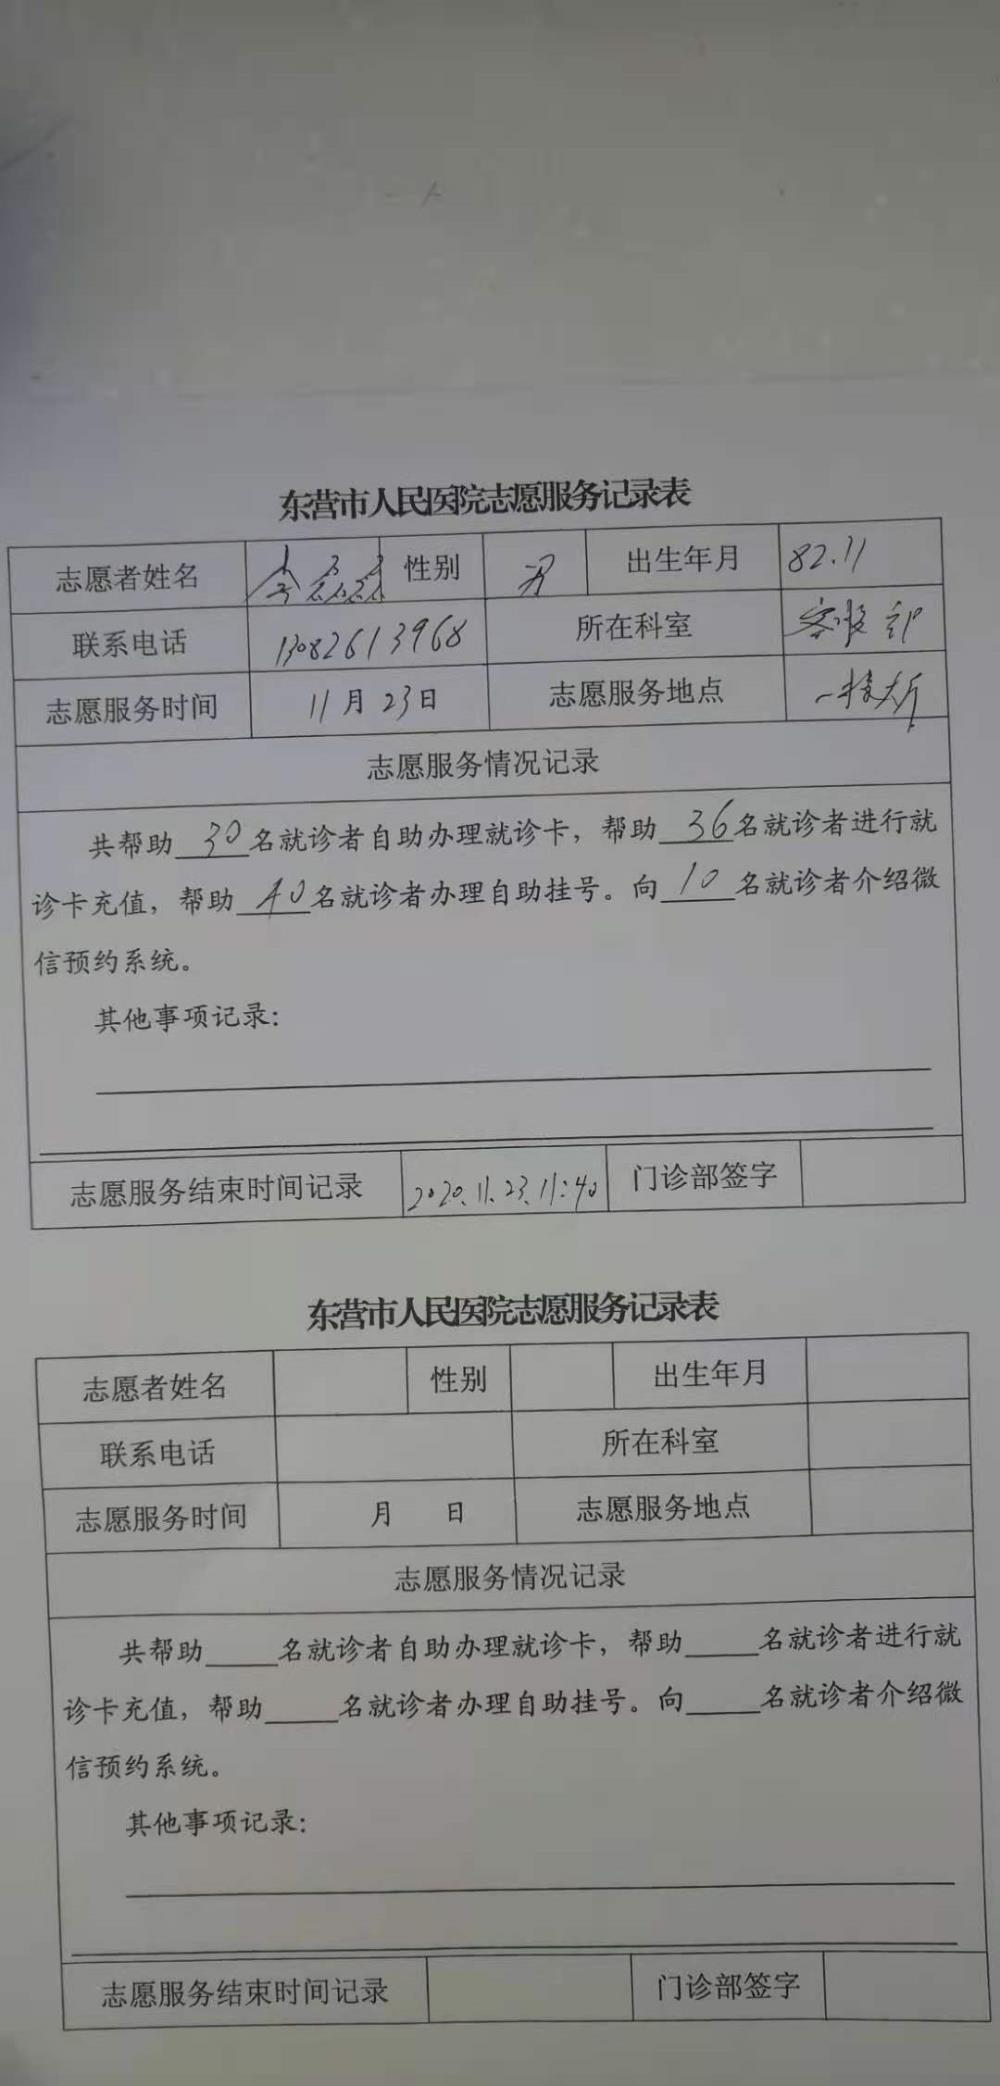 东营市人民医院志愿服务记录表
志愿者姓名 李磊磊 性别 男 出生年月 82.11
联系电话 13082613968 所在科室 客服部
志愿服务时间 11月23日 志愿服务地点 一楼大厅
志愿服务情况记录
共帮助30名就诊者自助办理就诊卡，帮助36名就诊者进行就
诊卡充值，帮助40名就诊者办理自助挂号。向10名就诊者介绍微
信预约系统。
其他事项记录：
志愿服务结束时间记录 2020.11.23.11:40 门诊部签字
东营市人民医院志愿服务记录表
志愿者姓名 性别 出生年月
联系电话 所在科室
志愿服务时间 月 日 志愿服务地点
志愿服务情况记录
共帮助_____名就诊者自助办理就诊卡，帮助_____名就诊者进行就
诊卡充值，帮助_____名就诊者办理自助挂号。向_____名就诊者介绍微
信预约系统。
其他事项记录：
志愿服务结束时间记录 门诊部签字